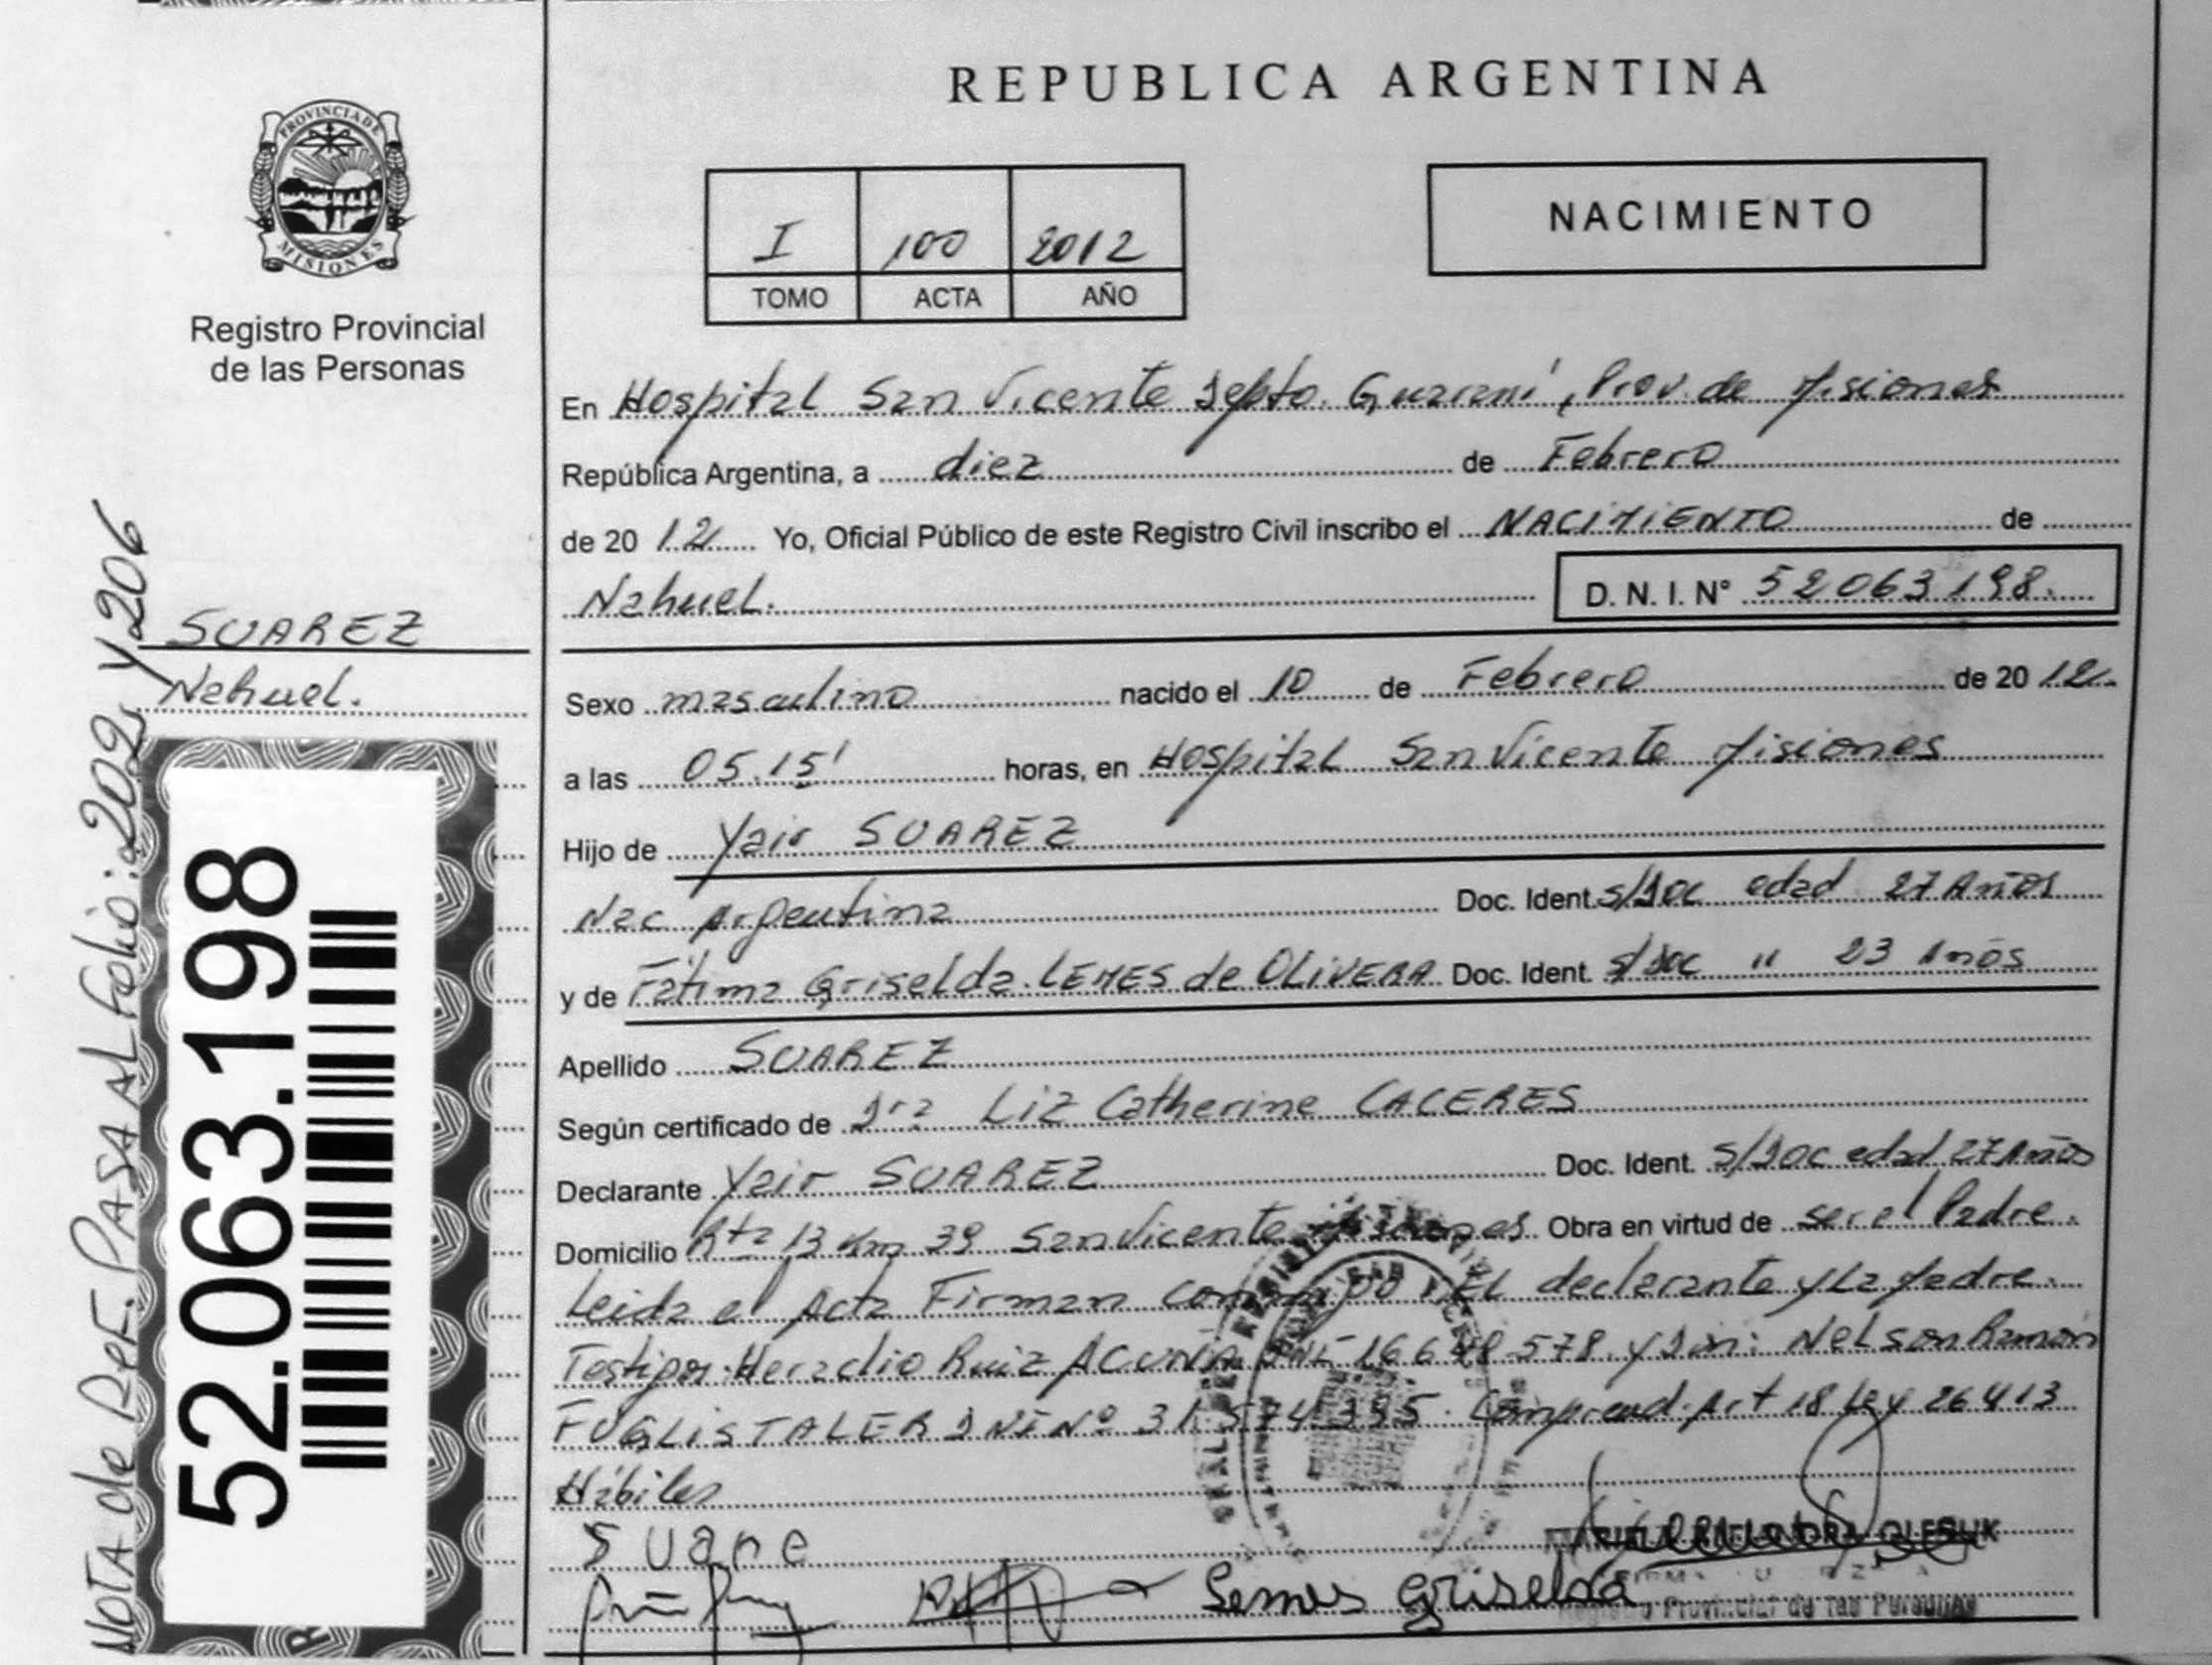 PROVINCIA DE
MISIONES
Registro Provincial
de las Personas
REPUBLICA ARGENTINA
I 100 2012
TOMO ACTA AÑO
NACIMIENTO
En Hospital San Vicente Depto. Guaraní, Prov. de Misiones
República Argentina, a diez de Febrero
de 2012 Yo, Oficial Público de este Registro Civil inscribo el NACIMIENTO de
Nahuel. D. N. I. Nº 52063198.
SUAREZ
Nahuel.
NOTA de REF. PASA AL Folio: 202 y 206
52.063.198
Sexo masculino nacido el 10 de Febrero de 2012.
a las 05.15' horas, en Hospital San Vicente Misiones
Hijo de Yair SUAREZ
Nac Argentina Doc. Ident. s/Doc edad 27 Años
y de Fátima Griselda LEMES de OLIVERA Doc. Ident. s/Doc " 23 Anós
Apellido SUAREZ
Según certificado de Dra Liz Catherine CACERES
Declarante Yair SUAREZ Doc. Ident. s/Doc edad 27 Años
Domicilio Rta 13 Km 39 San Vicente Misiones Obra en virtud de ser el Padre.
Leida el Acta Firman Conmigo El declarante y La Madre.
Testigos: Heraclio Ruiz ACUÑA DNI 16648578 y Dn: Nelson Ramón
FUGLISTALER DNI Nº 31.574.355. Comprend. Art 18 Ley 26413
Hábiles
Suane
Lemes Griselda
Registro Provincial de las Personas